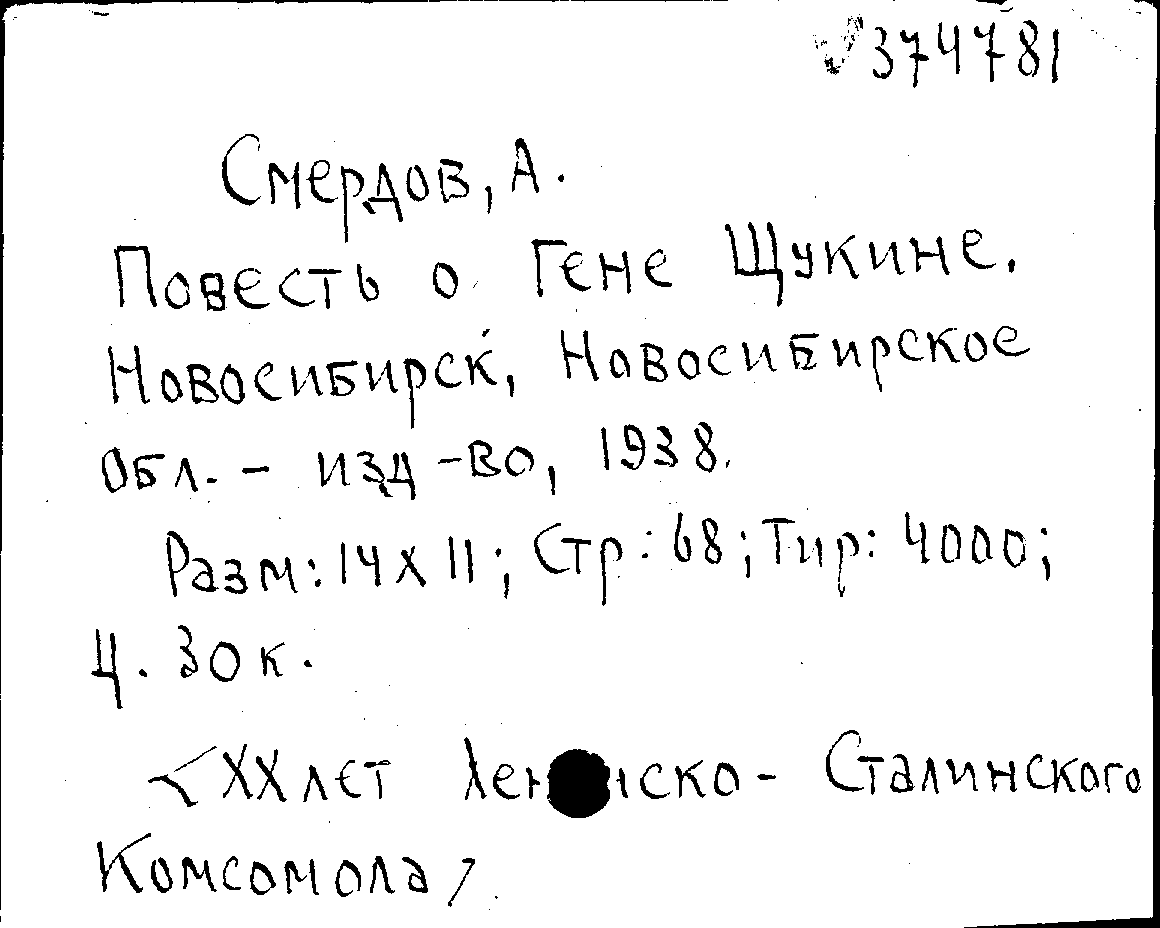 √374781
Смердов, А.
Повесть о Гене Щукине.
Новосибирск, Новосибирское
Обл. - изд-во, 1938.
Разм: 14 х 11; Стр: 68; Тир: 4000;
Ц. 30 к.
<XX лет Ленинско - Сталинского
Комсомола>.